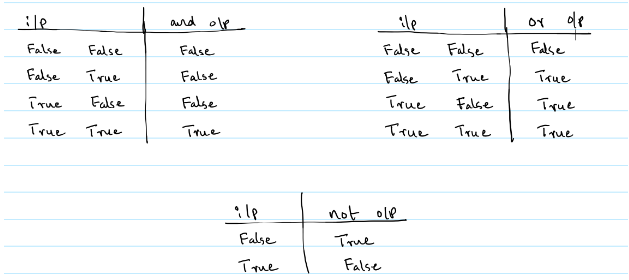 i/p and o/p
False False False
False True False
True False False
True True True
i/p or o/p
False False False
False True True
True False True
True True True
i/p not o/p
False True
True False